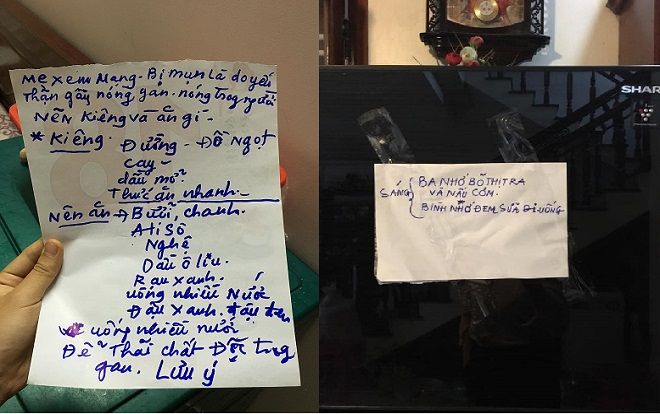 Mẹ xem mạng. Bị mụn là do yếu
Thận gây nóng gan. nóng trong người
Nên Kiêng và ăn gì -
* Kiêng. Đường - Đồ Ngọt
Cay -
dầu mở
Thức ăn nhanh -
Nên ăn → Bưởi, chanh.
Atisô
Nghệ
Dầu ô liu.
Rau xanh.
uống nhiều Nước
Đậu xanh. đậu đen
uống nhiều nước
Để Thải chất Độc trong
gan. Lưu ý
SHAR
SÁNG { BA NHỚ BỎ THỊT RA
VÀ NẤU CƠM.
BÌNH NHỚ ĐEM SỮA ĐI UỐNG